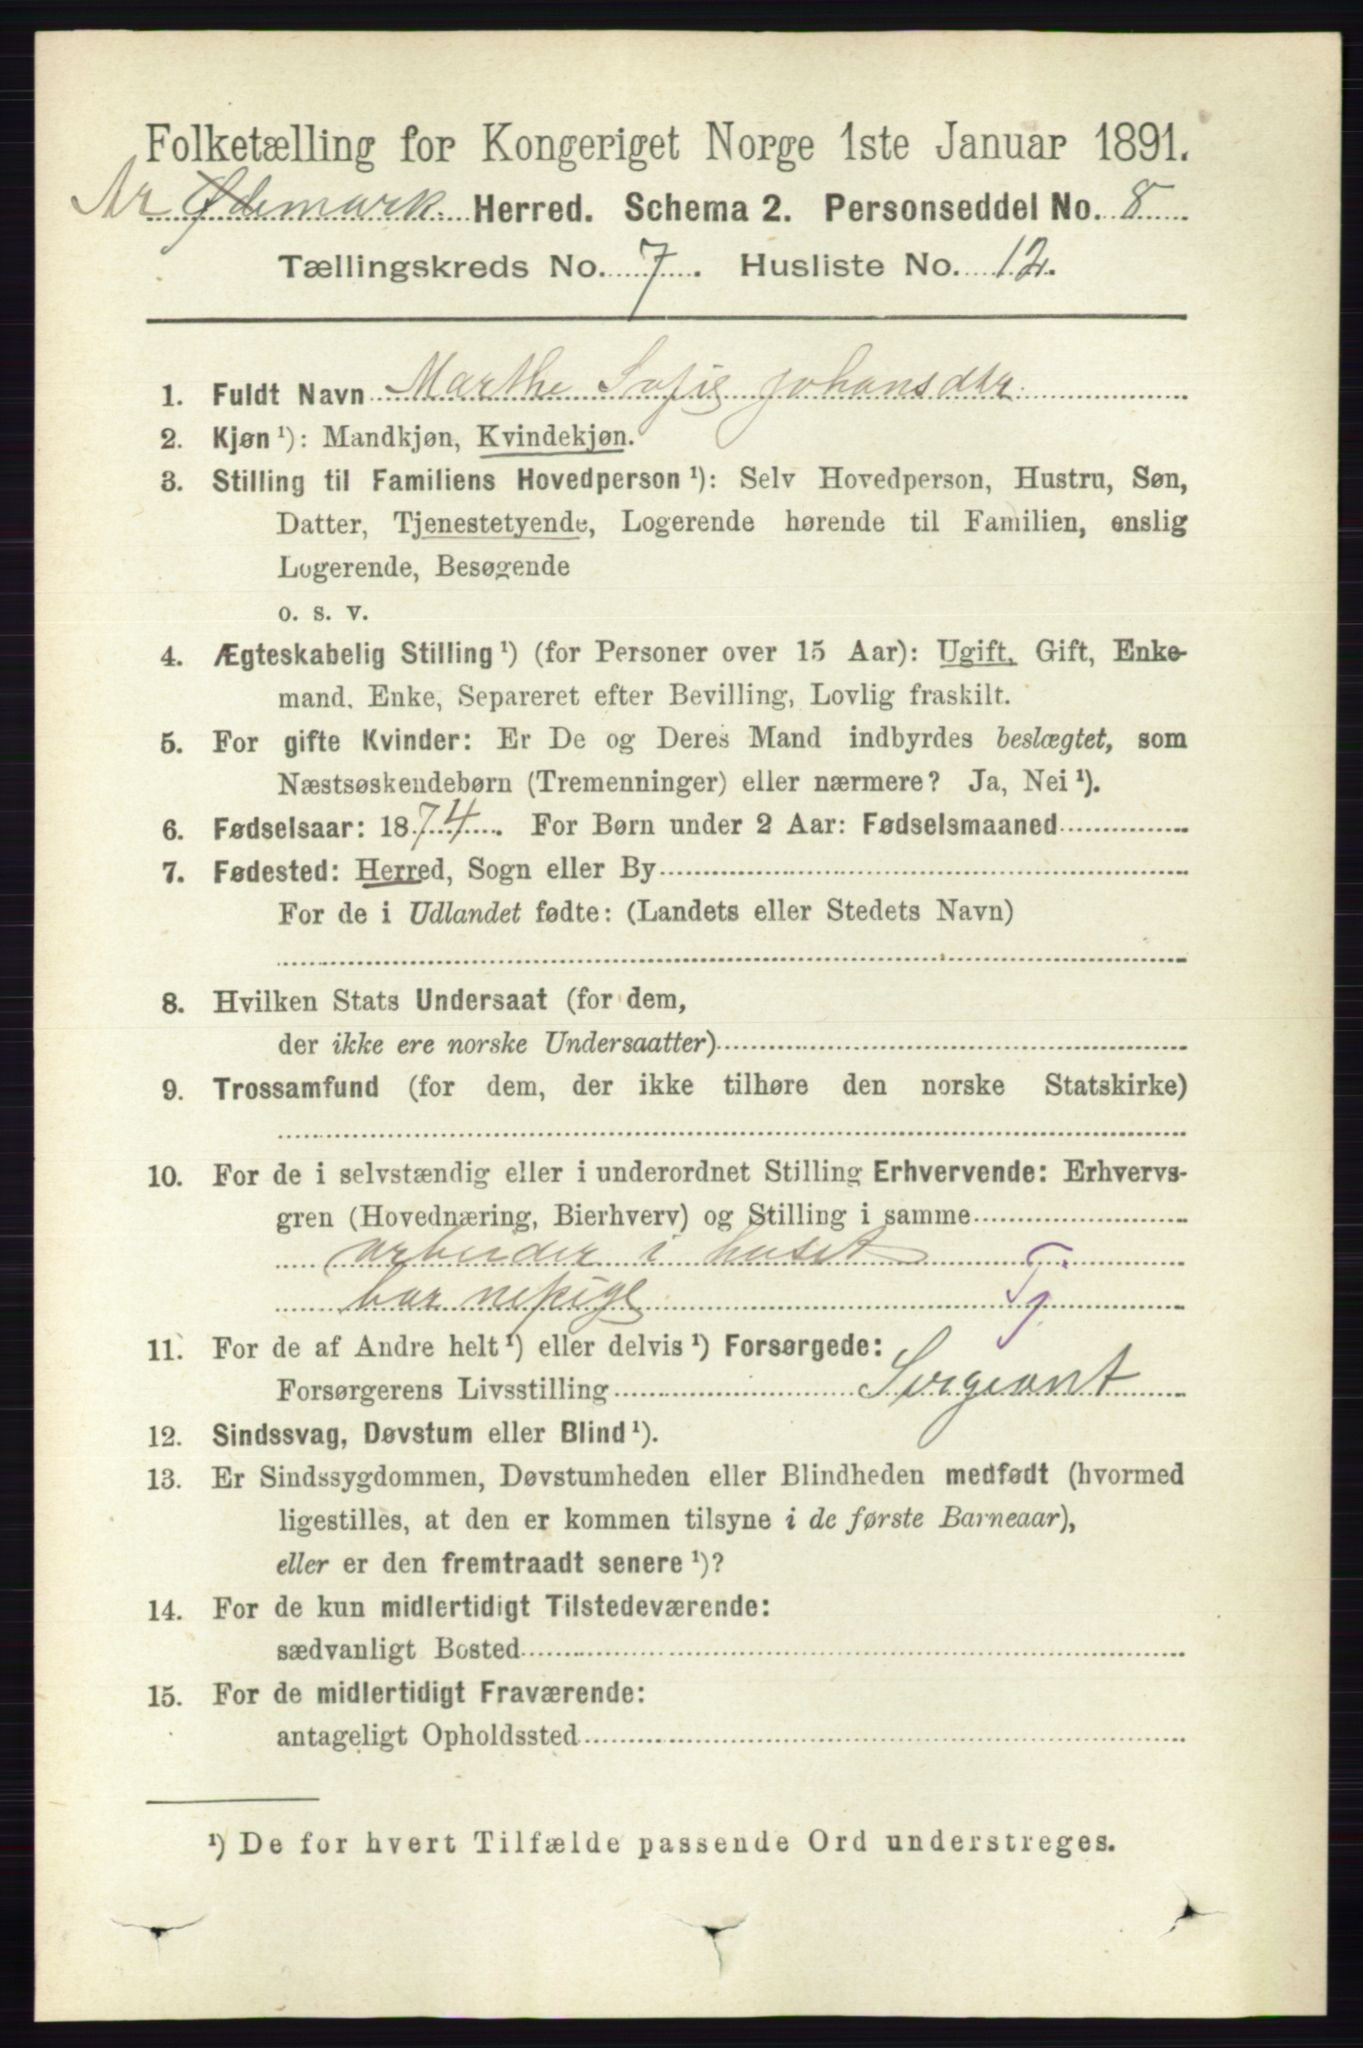 Folketælling for Kongeriget Norge 1ste Januar 1891.
Ar Ødemark Herred. Schema 2. Personseddel No. 8
Tællingskreds No. 7. Husliste No. 12.
1. Fuldt Navn Marthe Sofie Johansdtr
2. Kjøn ¹): Mandkjøn, Kvindekjøn.
3. Stilling til Familiens Hovedperson ¹): Selv Hovedperson, Hustru, Søn,
Datter, Tjenestetyende, Logerende hørende til Familien, enslig
Logerende, Besøgende
o. s. v.
4. Ægteskabelig Stilling ¹) (for Personer over 15 Aar): Ugift, Gift, Enke-
mand, Enke, Separeret efter Bevilling, Lovlig fraskilt.
5. For gifte Kvinder: Er De og Deres Mand indbyrdes beslægtet, som
Næstsøskendebørn (Tremenninger) eller nærmere? Ja, Nei ¹).
6. Fødselsaar: 1874. For Børn under 2 Aar: Fødselsmaaned
7. Fødested: Herred, Sogn eller By
For de i Udlandet fødte: (Landets eller Stedets Navn)
8. Hvilken Stats Undersaat (for dem,
der ikke ere norske Undersaatter)
9. Trossamfund (for dem, der ikke tilhøre den norske Statskirke)
10. For de i selvstændig eller i underordnet Stilling Erhvervende: Erhvervs-
gren (Hovednæring, Bierhverv) og Stilling i samme
arbeider i huset
barnepige Tj.
11. For de af Andre helt ¹) eller delvis ¹) Forsørgede:
Forsørgerens Livsstilling Sergeant
12. Sindssvag, Døvstum eller Blind ¹).
13. Er Sindssygdommen, Døvstumheden eller Blindheden medfødt (hvormed
ligestilles, at den er kommen tilsyne i de første Barneaar),
eller er den fremtraadt senere ¹)?
14. For de kun midlertidigt Tilstedeværende:
sædvanligt Bosted
15. For de midlertidigt Fraværende:
antageligt Opholdssted
¹) De for hvert Tilfælde passende Ord understreges.